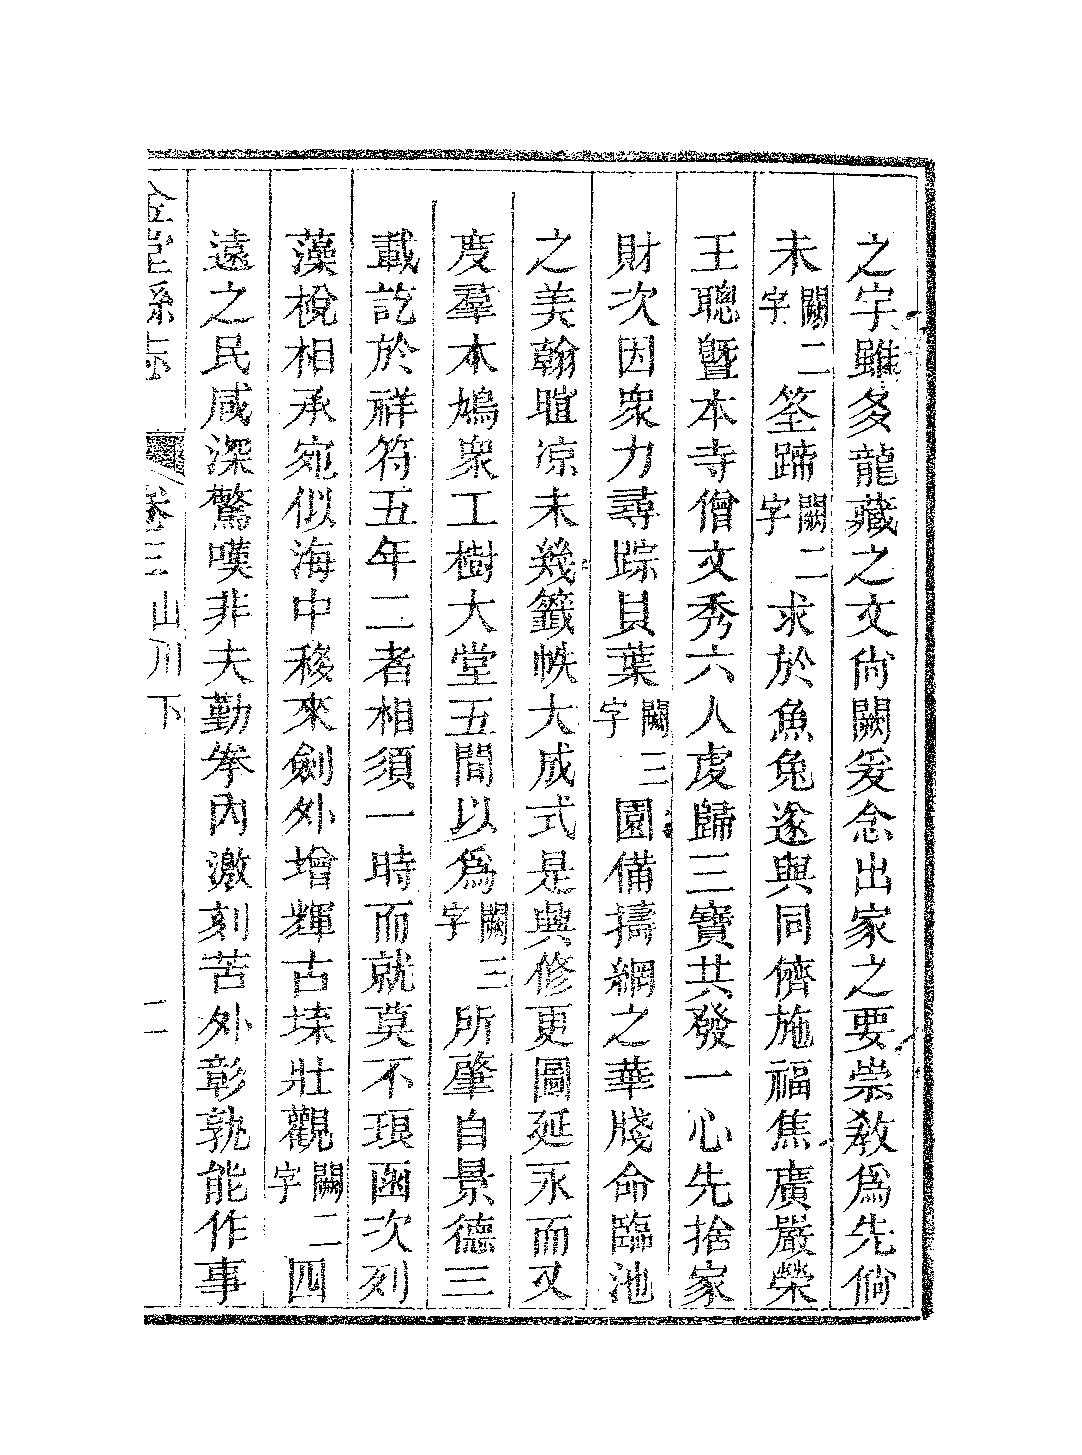 之宇雖多龍藏之文尙闕爰念出家之要崇敎爲先倘
未闕二字筌蹄闕二字求於魚兔遂與同儕施福焦廣嚴榮
王聰曁本寺僧文秀六人虔歸三寶共發一心先捨家
財次因衆力尋踪貝葉闕三字園備擣網之華牋命臨池
之美翰暄凉未幾籤帙大成式是典修更圖延永而又
度羣木鳩衆工樹大堂五間以爲闕三字所肇自景德三
載訖於祥符五年二者相須一時而就莫不琅函次列
藻梲相承宛似海中移來劍外增輝古埭壯觀闕二字四
遠之民咸深驚嘆非夫勤拳內激刻苦外彰孰能作事
金堂縣志 卷三 山川下 二